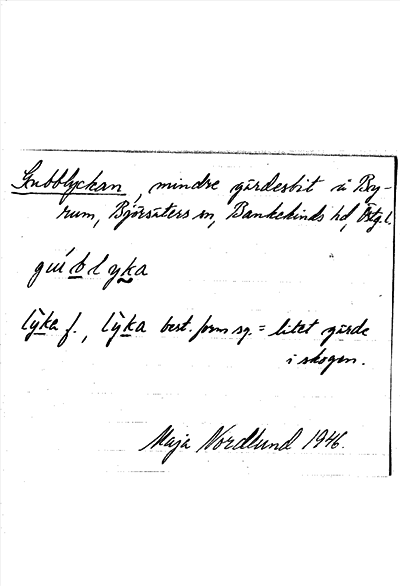 Gubblyckan, mindre gärdesbit å By-
rum, Björsäters sn, Bankekinds hd, Östg. l.
gúb̲lyk̲a
lỳk̲a f., lỳk̲a best. form sg. = litet gärde
i skogen.
Maja Nordlund 1946.